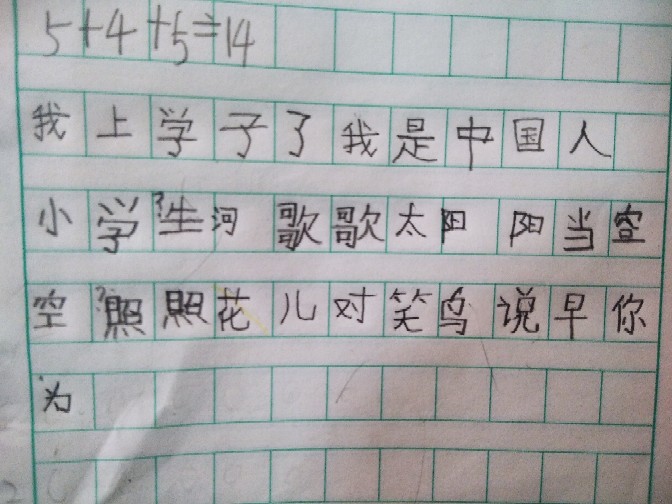 5+4+5=14
我上学子了我是中国人
小学生河歌歌太阳阳当空
空照照花儿对笑鸟说早你
为